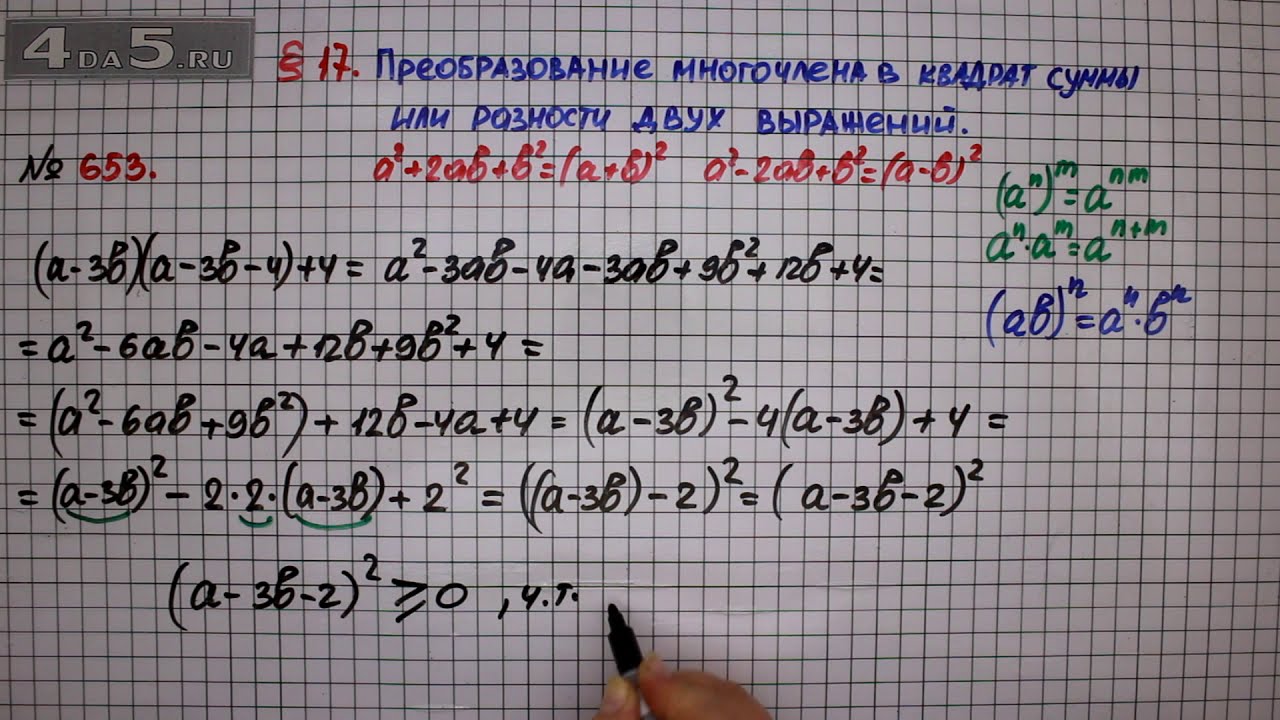 4DA5.RU
§ 17. Преобразование многочлена в квадрат суммы
или разности двух выражений.
№ 653.
a²+2ab+b²=(a+b)² a²-2ab+b²=(a-b)²
(aⁿ)ᵐ=aⁿᵐ
aⁿ·aᵐ=aⁿ⁺ᵐ
(ab)ⁿ=aⁿ·bⁿ
(a-3b)(a-3b-4)+4= a²-3ab-4a-3ab+9b²+12b+4=
=a²-6ab-4a+12b+9b²+4=
=(a²-6ab+9b²)+12b-4a+4=(a-3b)²-4(a-3b)+4=
=(a-3b)²-2·2·(a-3b)+2²=((a-3b)-2)²=(a-3b-2)²
(a-3b-2)²⩾0 , ч.т.